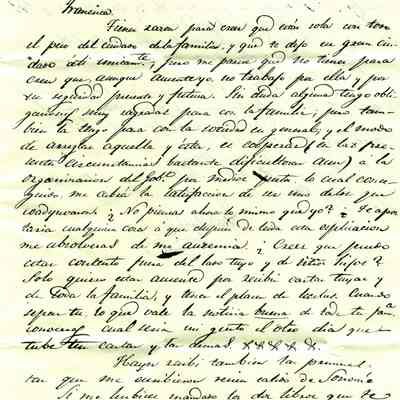 Francisca.
Tienes razon para creer que estás sola con todo
el peso del cuidado de la familia, y que te dejo en gran cui-
dado á ti unicamente, pero me parece que no tienes para
creer que, aunque ausente yo, no trabajo por ella y por
su seguridad presente y futura. Sin duda alguna tengo obli-
gaciones muy sagradas para con la familia; pero tam-
bien la tengo para con la sociedad en general, y el modo
de arreglar aquella y esta, es cooperar (en las pre-
sentes circunstancias bastante dificultosas aun) á la
organizacion del Gob.º por medios justos, lo cual conse-
guido, me cabrá la satisfaccion de ser uno de los que
coadyuvaron. ¿No piensas ahora lo mismo que yo? ¿Te apos-
taria cualquiera cosa á que despues de leida esta esplicacion
me absolveras de mi ausencia. ¿Crees que puedo
estar contento fuera del lado tuyo y de estos hijos?
Solo quiero estar ausente por recibir cartas tuyas y
de toda la familia, y tener el placer de leerlas. Cuando
separarte, lo que vale la noticia buena de toda tu fam.ª
conoceras cual seria mi gusto el otro dia que
tube tu carta y las demas. XXXXX.
Hayer recibi tambien las primeras
que me escribieron recien salido de Sonora
Si me hubieses mandado los dos libros que te